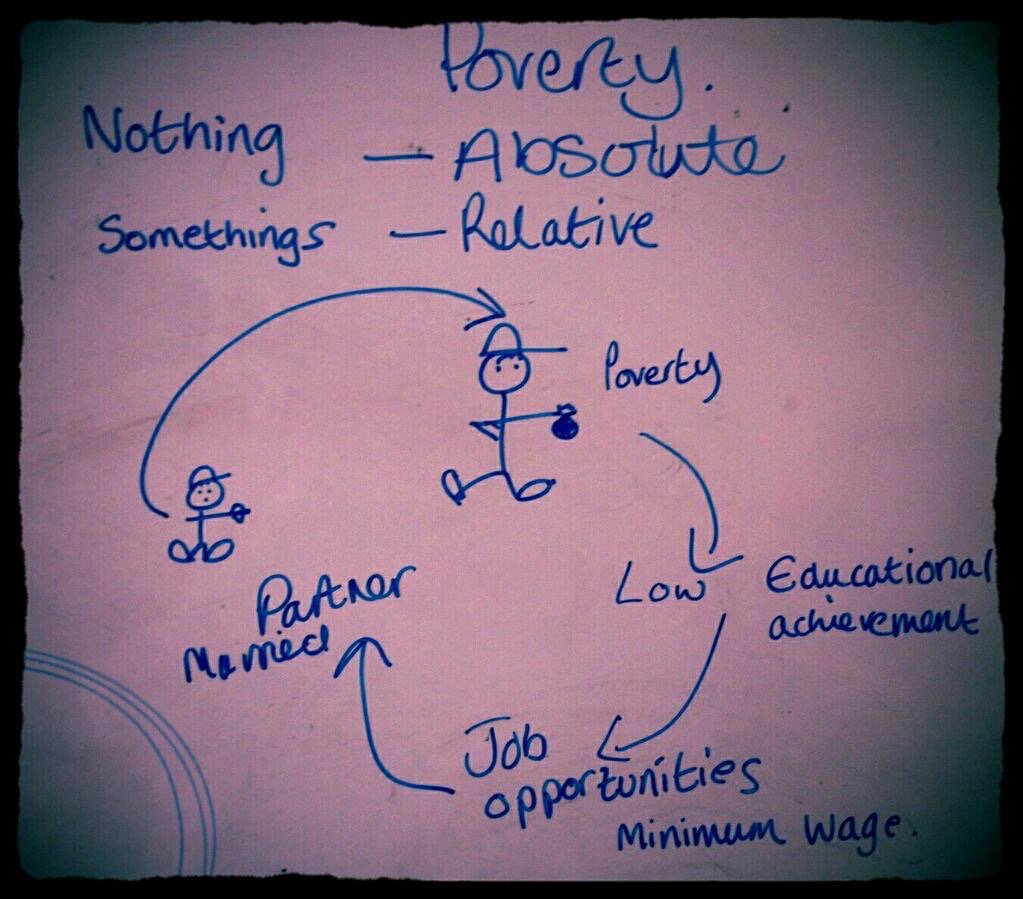 Poverty.
Nothing — Absolute
Somethings — Relative
Poverty
Low Educational
achievement
Partner
Married
Job
opportunities
Minimum Wage.